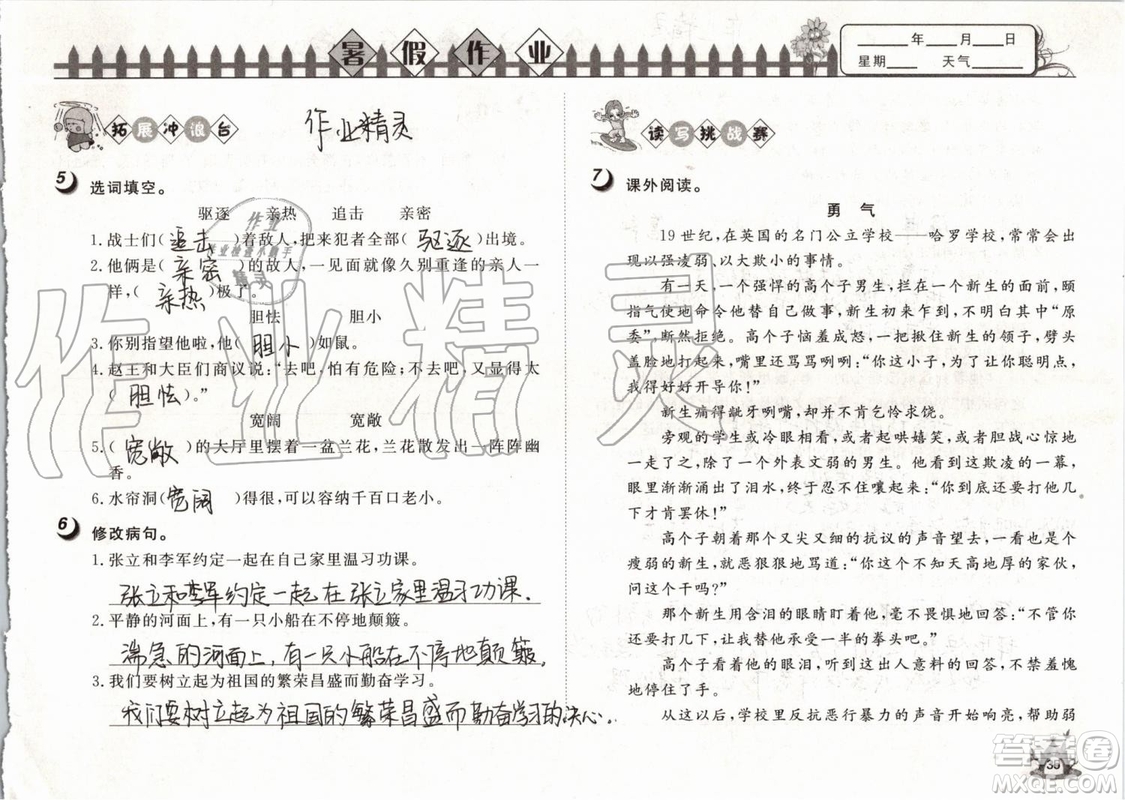 暑假作业
____年____月____日
星期____ 天气____
拓展冲浪台
作业精灵
5 选词填空。
驱逐 亲热 追击 亲密
1.战士们(追击)着敌人,把来犯者全部(驱逐)出境。
2.他俩是(亲密)的故人,一见面就像久别重逢的亲人一
样,(亲热)极了。
胆怯 胆小
3.你别指望他啦,他(胆小)如鼠。
4.赵王和大臣们商议说:“去吧,怕有危险;不去吧,又显得太
(胆怯)。”
宽阔 宽敞
5.(宽敞)的大厅里摆着一盆兰花,兰花散发出一阵阵幽
香。
6.水帘洞(宽阔)得很,可以容纳千百口老小。
6 修改病句。
1.张立和李军约定一起在自己家里温习功课。
张立和李军约定一起在张立家里温习功课.
2.平静的河面上,有一只小船在不停地颠簸。
湍急的河面上,有一只小船在不停地颠簸.
3.我们要树立起为祖国的繁荣昌盛而勤奋学习。
我们要树立起为祖国的繁荣昌盛而勤奋学习的决心。
读写挑战赛
7 课外阅读。
勇气
19世纪,在英国的名门公立学校——哈罗学校,常常会出
现以强凌弱、以大欺小的事情。
有一天,一个强悍的高个子男生,拦在一个新生的面前,颐
指气使地命令他替自己做事,新生初来乍到,不明白其中“原
委”,断然拒绝。高个子恼羞成怒,一把揪住新生的领子,劈头
盖脸地打起来,嘴里还骂骂咧咧:“你这小子,为了让你聪明点,
我得好好开导你!”
新生痛得龇牙咧嘴,却并不肯乞怜求饶。
旁观的学生或冷眼相看,或者起哄嬉笑,或者胆战心惊地
一走了之,除了一个外表文弱的男生。他看到这欺凌的一幕,
眼里渐渐涌出了泪水,终于忍不住嚷起来:“你到底还要打他几
下才肯罢休!”
高个子朝着那个又尖又细的抗议的声音望去,一看也是个
瘦弱的新生,就恶狠狠地骂道:“你这个不知天高地厚的家伙,
问这个干吗?”
那个新生用含泪的眼睛盯着他,毫不畏惧地回答:“不管你
还要打几下,让我替他承受一半的拳头吧。”
高个子看着他的眼泪,听到这出人意料的回答,不禁羞愧
地停住了手。
从这以后,学校里反抗恶行暴力的声音开始响亮,帮助弱
35
作业精灵
作业
作业检查小助手
精灵
答案卷
MXQE.COM